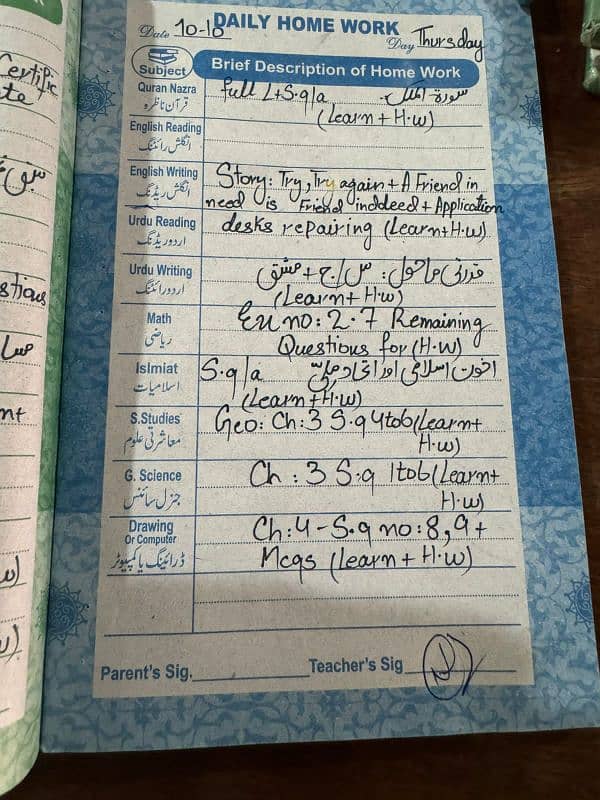 DAILY HOME WORK
Date 10-10 Day Thursday
Subject Brief Description of Home Work
Quran Nazra full L+S.q/a سورۃ الملک
قرآن ناظرہ (Learn + H.w)
English Reading
انگلش رائٹنگ
English Writing Story: Try, Try again + A Friend in
انگلش ریڈنگ need is Friend inddeed + Application
Urdu Reading desks repairing (Learn+H.w)
اردو ریڈنگ
Urdu Writing قدرتی ماحول: س/ج + مشق
اردو رائٹنگ (Learn+ H.w)
Math Ex no: 2.7 Remaining
ریاضی Questions for (H.W)
Islmiat S.q/a اخوت اسلامی اور اتحاد ملی
اسلامیات (Learn+H.w)
S.Studies Geo: Ch:3 S.q 4to6(Learn+
معاشرتی علوم H.w)
G. Science Ch : 3 S.q 1to6(Learn+
جنرل سائنس H.w)
Drawing Ch:4 - S.q no:8,9+
Or Computer
ڈرائینگ یا کمپیوٹر Mcqs (Learn + H.w)
Parent's Sig. Teacher's Sig
Certific
ate
stions
nt
w)
w)